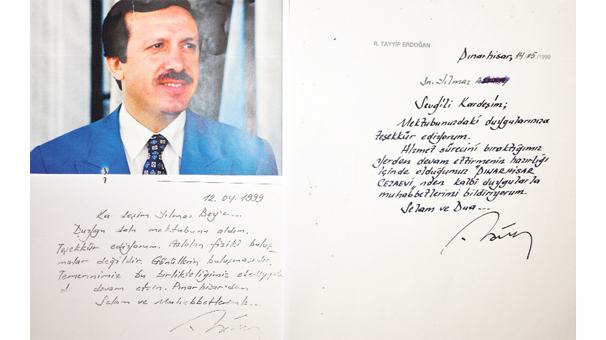 12.04.1999
Yılmaz Bey'e...
mektubunu aldım.
Teşekkür ediyorum. fiziki
malar değildir. Gönüllerin buluşmasıdır.
Temennimiz bu birlikteliğimiz
devam etsin. Pınarhisar'dan
Selam ve Muhabbetlerimle..
R. TAYYİP ERDOĞAN
Pınarhisar, 14.05/1999
Sn. Yılmaz
Sevgili Kardeşim;
Mektubunuzdaki duygularınıza
teşekkür ediyorum.
Hizmet sürecini bıraktığımız
yerden devam ettirmenin hazırlığı
içinde olduğumuz "PINARHİSAR
CEZAEVİ"nden kalbi duygularla
muhabbetlerimi bildiriyorum.
Selam ve Dua...